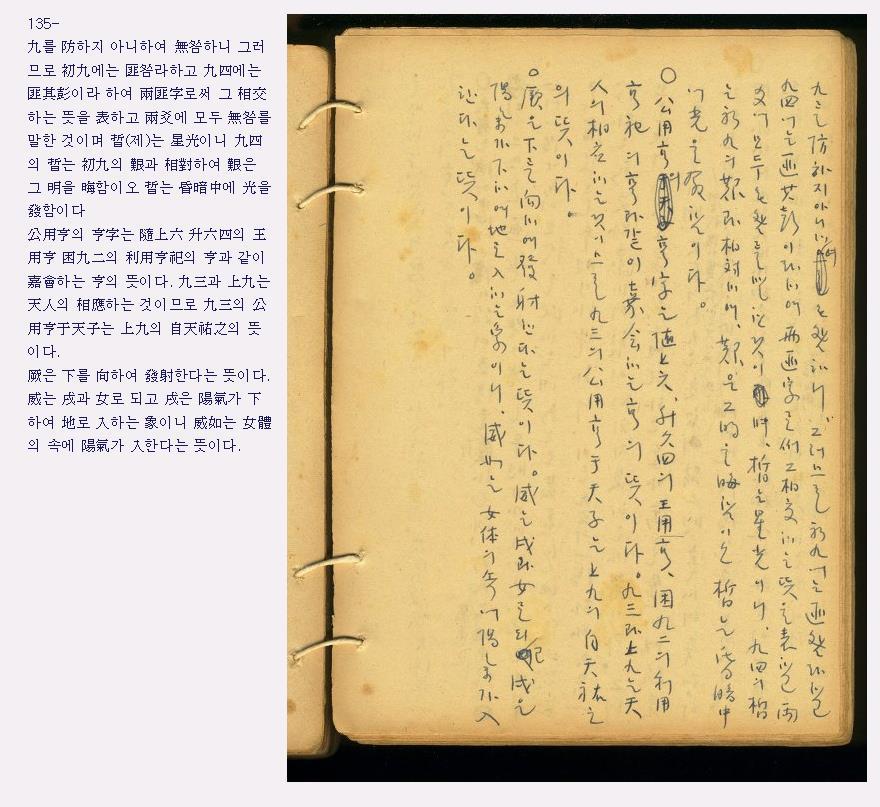 135-
九를 防하지 아니하여 無咎하니 그러
므로 初九에는 匪咎라하고 九四에는
匪其彭이라 하여 兩匪字로써 그 相交
하는 뜻을 表하고 兩爻에 모두 無咎를
말한 것이며 晢(제)는 星光이니 九四
의 晢는 初九의 艱과 相對하여 艱은
그 明을 晦함이오 晢는 昏暗中에 光을
發함이다
公用亨의 亨字는 隨上六 升六四의 王
用亨 困九二의 利用亨祀의 亨과 같이
嘉會하는 亨의 뜻이다. 九三과 上九는
天人의 相應하는 것이므로 九三의 公
用亨于天子는 上九의 自天祐之의 뜻
이다.
厥은 下를 向하여 發射한다는 뜻이다.
威는 戌과 女로 되고 戌은 陽氣가 下
하여 地로 入하는 象이니 威如는 女體
의 속에 陽氣가 入한다는 뜻이다.
九三을 防하지아니하여 无咎하니 그러므로 初九에는 匪咎라하고
九四에는 匪其彭이라하여 兩匪字로써 그 相交하는 뜻을 表하고 兩
爻에 모두 无咎를 말한 것이며, 晢는 星光이니, 九四의 晢
는 初九의 艱과 相対하여, 艱은 그 明을 晦함이오 晢는 昏暗中
에 光을 發함이다。
○ 公用亨의 亨字는 隨上六、升六四의 王用亨、困九二의 利用
亨祀의 亨과 같이 嘉会하는 亨의 뜻이다。九三과 上九는 天
人의 相応하는 것이므로 九三의 公用亨于天子는 上九의 自天祐之
의 뜻이다。
○厥은 下를 向하여 發射한다는 뜻이다。威는 戌과 女로 되고 戌은
陽气가 下하여 地로 入하는 象이니、威如는 女体의 속에 陽气가 入
한다는 뜻이다。